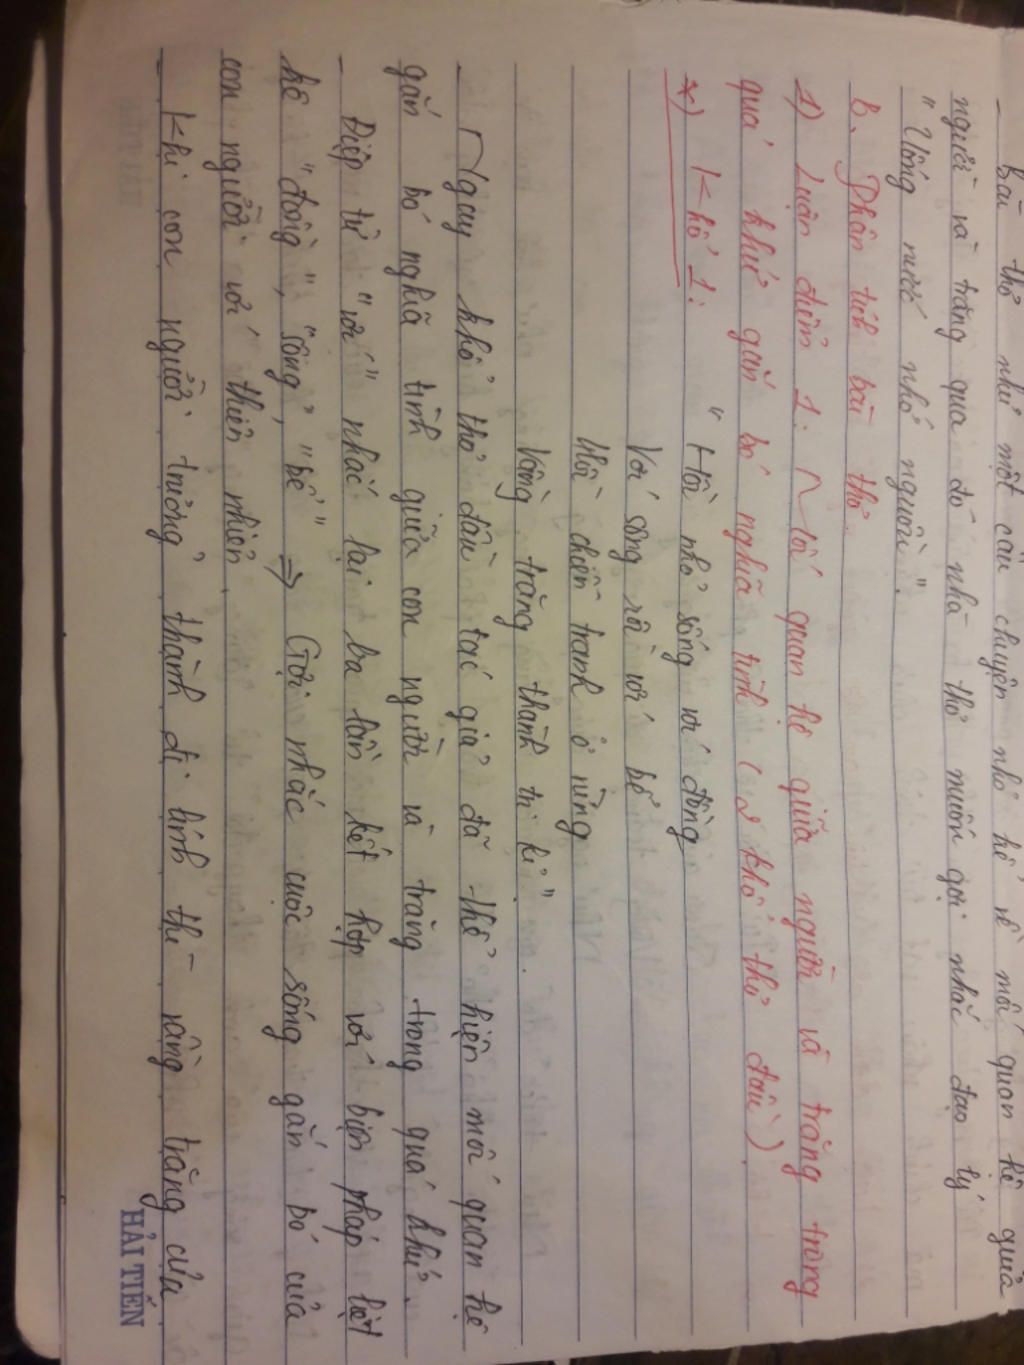 - Bài thơ như một câu chuyện nhỏ kể về mối quan hệ giữa
người và trăng qua đó nhà thơ muốn gợi nhắc đạo lý
"Uống nước nhớ nguồn".
B. Phân tích bài thơ.
1) Luận điểm 1: Mối quan hệ giữa người và trăng trong
quá khứ gắn bó nghĩa tình (2 khổ thơ đầu).
*) Khổ 1: "Hồi nhỏ sống với đồng
Với sông rồi với bể
Hồi chiến tranh ở rừng
Vầng trăng thành tri kỉ".
- Ngay khổ thơ đầu tác giả đã thể hiện mối quan hệ
gắn bó nghĩa tình giữa con người và trăng trong quá khứ.
- Điệp từ "với" nhắc lại ba lần kết hợp với biện pháp liệt
kê "đồng", "sông", "bể" => Gợi nhắc cuộc sống gắn bó của
con người với thiên nhiên.
- Khi con người trưởng thành đi lính thì vầng trăng vừa
HẢI TIẾN